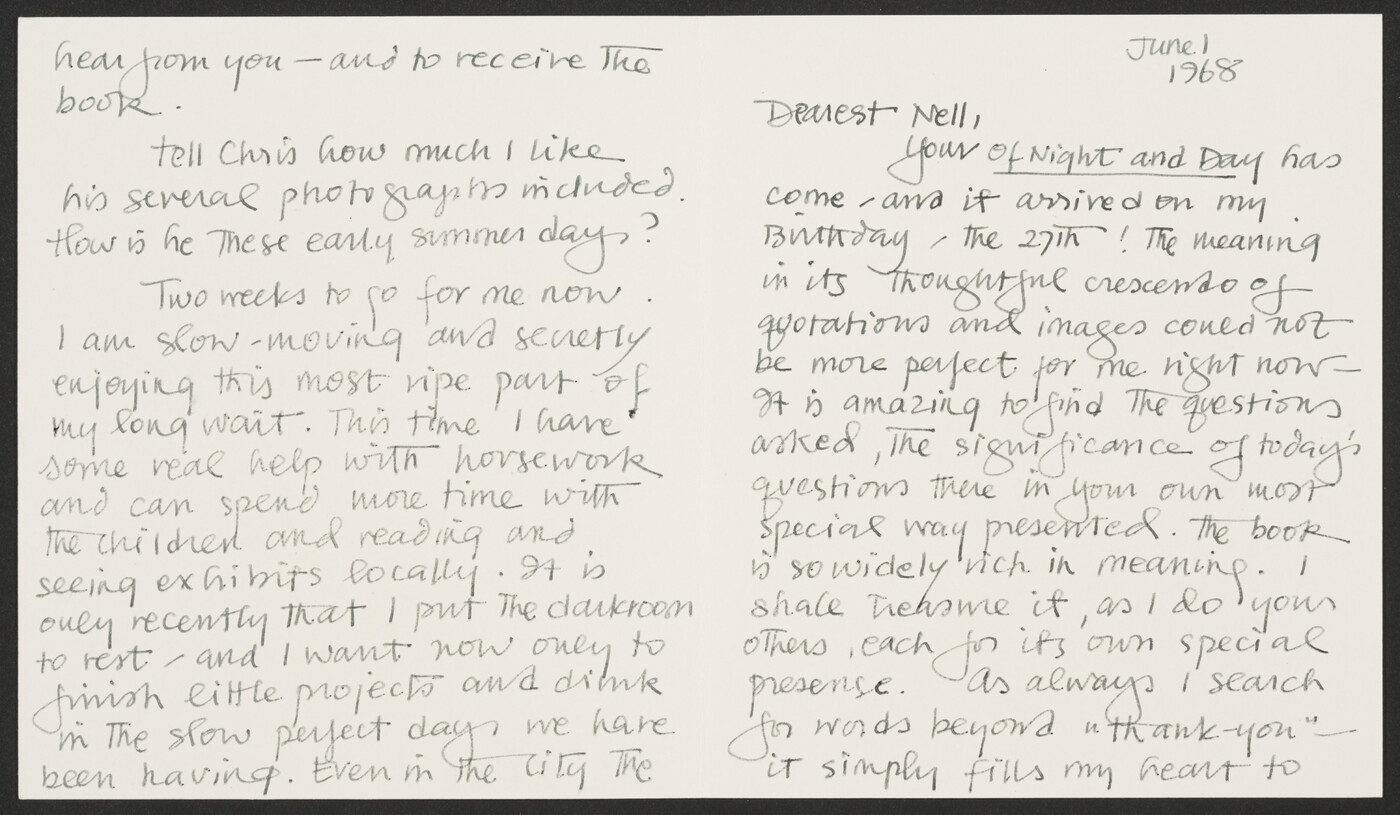 June 1
1968
Dearest Nell,
Your of Night and Day has
come - and it arrived on my
Birthday - the 27th ! The meaning
in its thoughtful crescendo of
quotations and images could not
be more perfect for me right now —
It is amazing to find the questions
asked, the significance of today's
questions there in your own most
special way presented. The book
is so widely rich in meaning. I
shall treasure it, as I do your
others, each for its own special
presense. As always I search
for words beyond "thank-you" —
it simply fills my heart to
hear from you — and to receive the
book.
Tell Chris how much I like
his several photographs included.
How is he these early summer days?
Two weeks to go for me now.
I am slow-moving and secretly
enjoying this most ripe part of
my long wait. This time I have
some real help with housework
and can spend more time with
the children and reading and
seeing exhibits locally. It is
only recently that I put the darkroom
to rest - and I want now only to
finish little projects and drink
in the slow perfect days we have
been having. Even in the city the